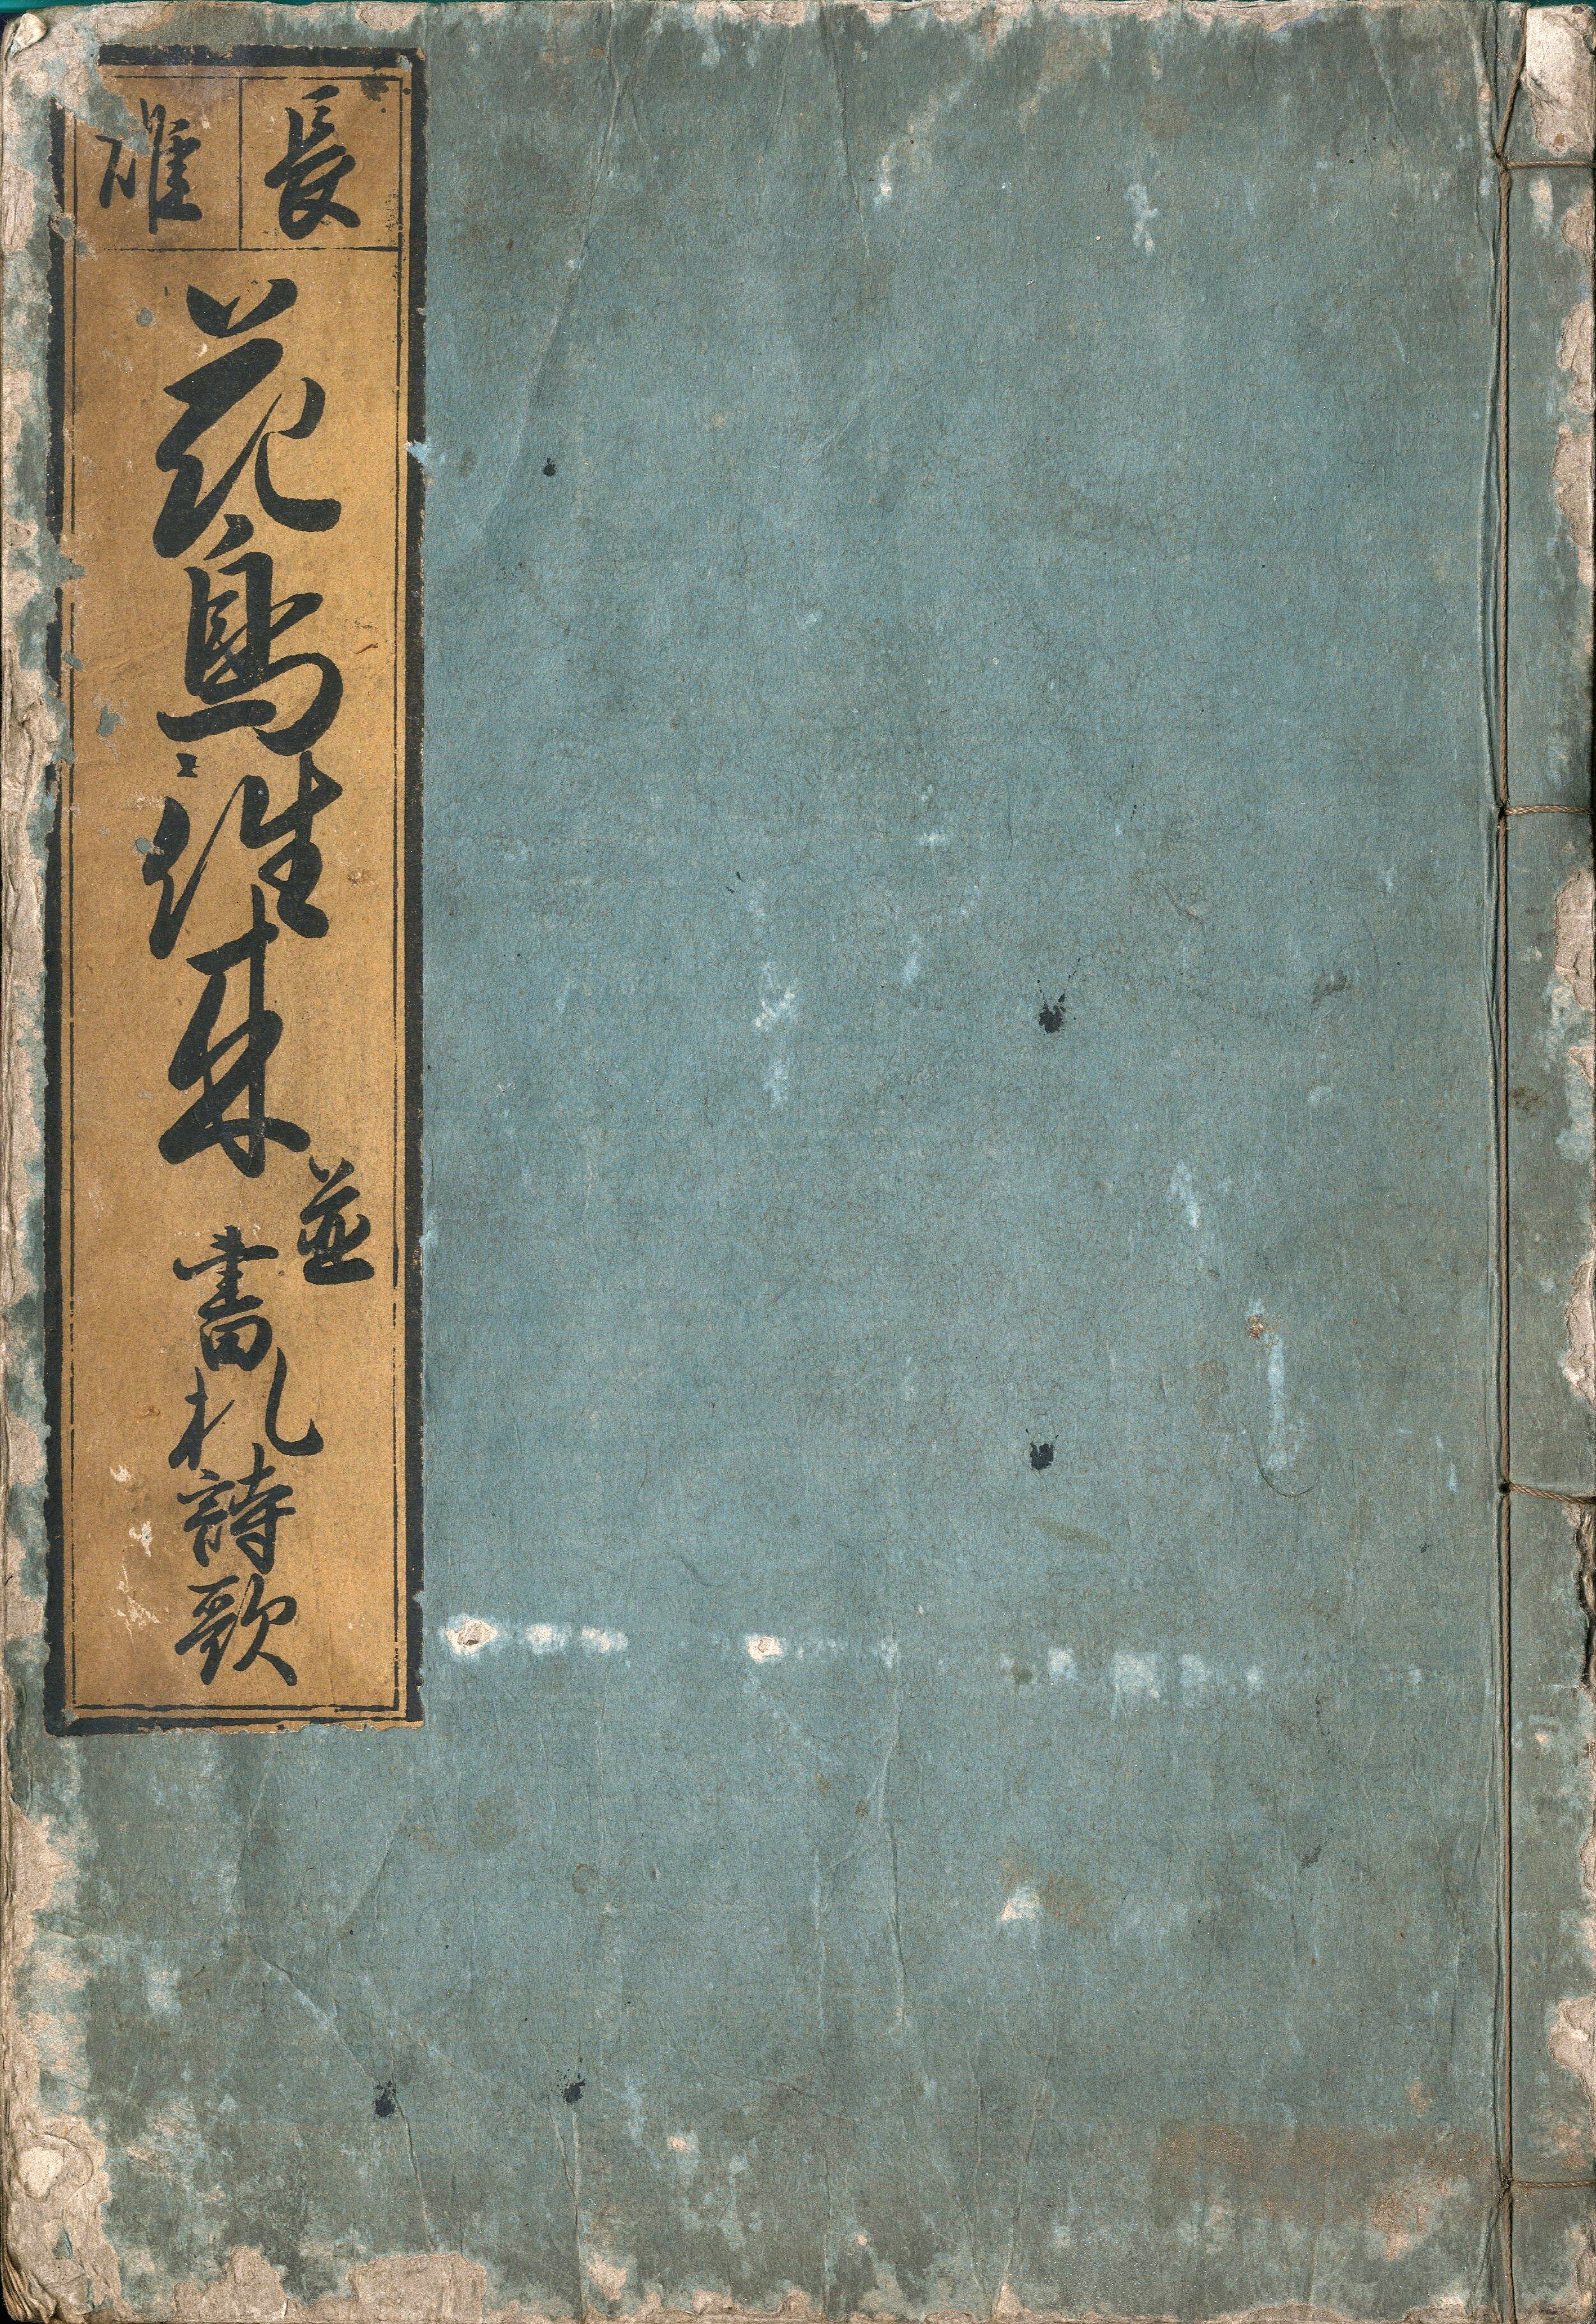 長雄
花鳥往来
並
書札詩歌